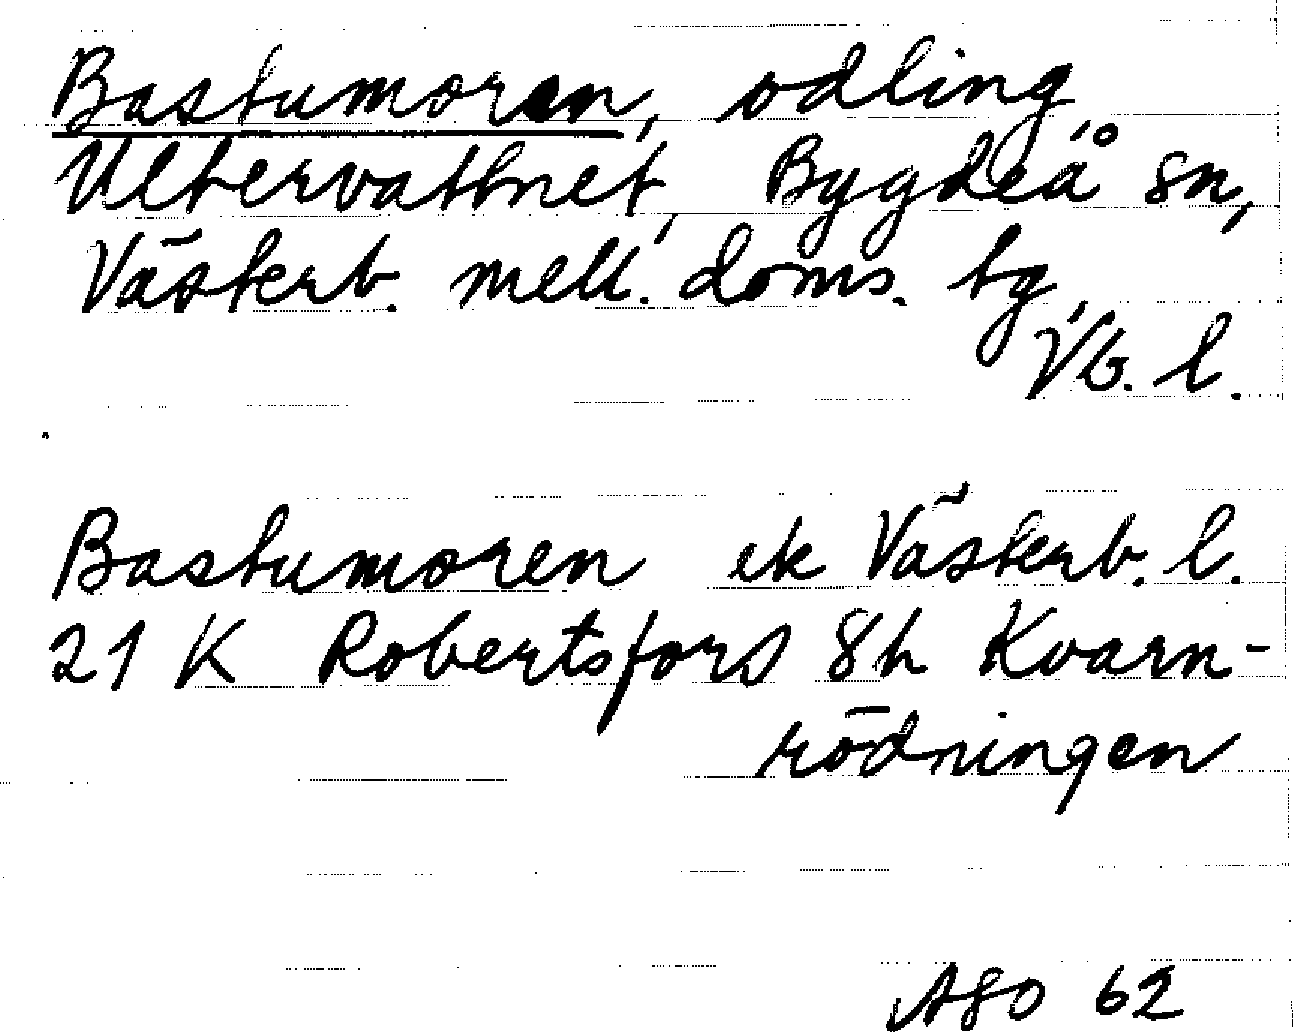 Bastumoren, odling,
Ultervattnet, Bygdeå sn,
Västerb. mell. doms. tg,
Vb. l.
Bastumoren ek Västerb. l.
21 K Robertsfors 8h Kvarn-
rödningen
ASO 62